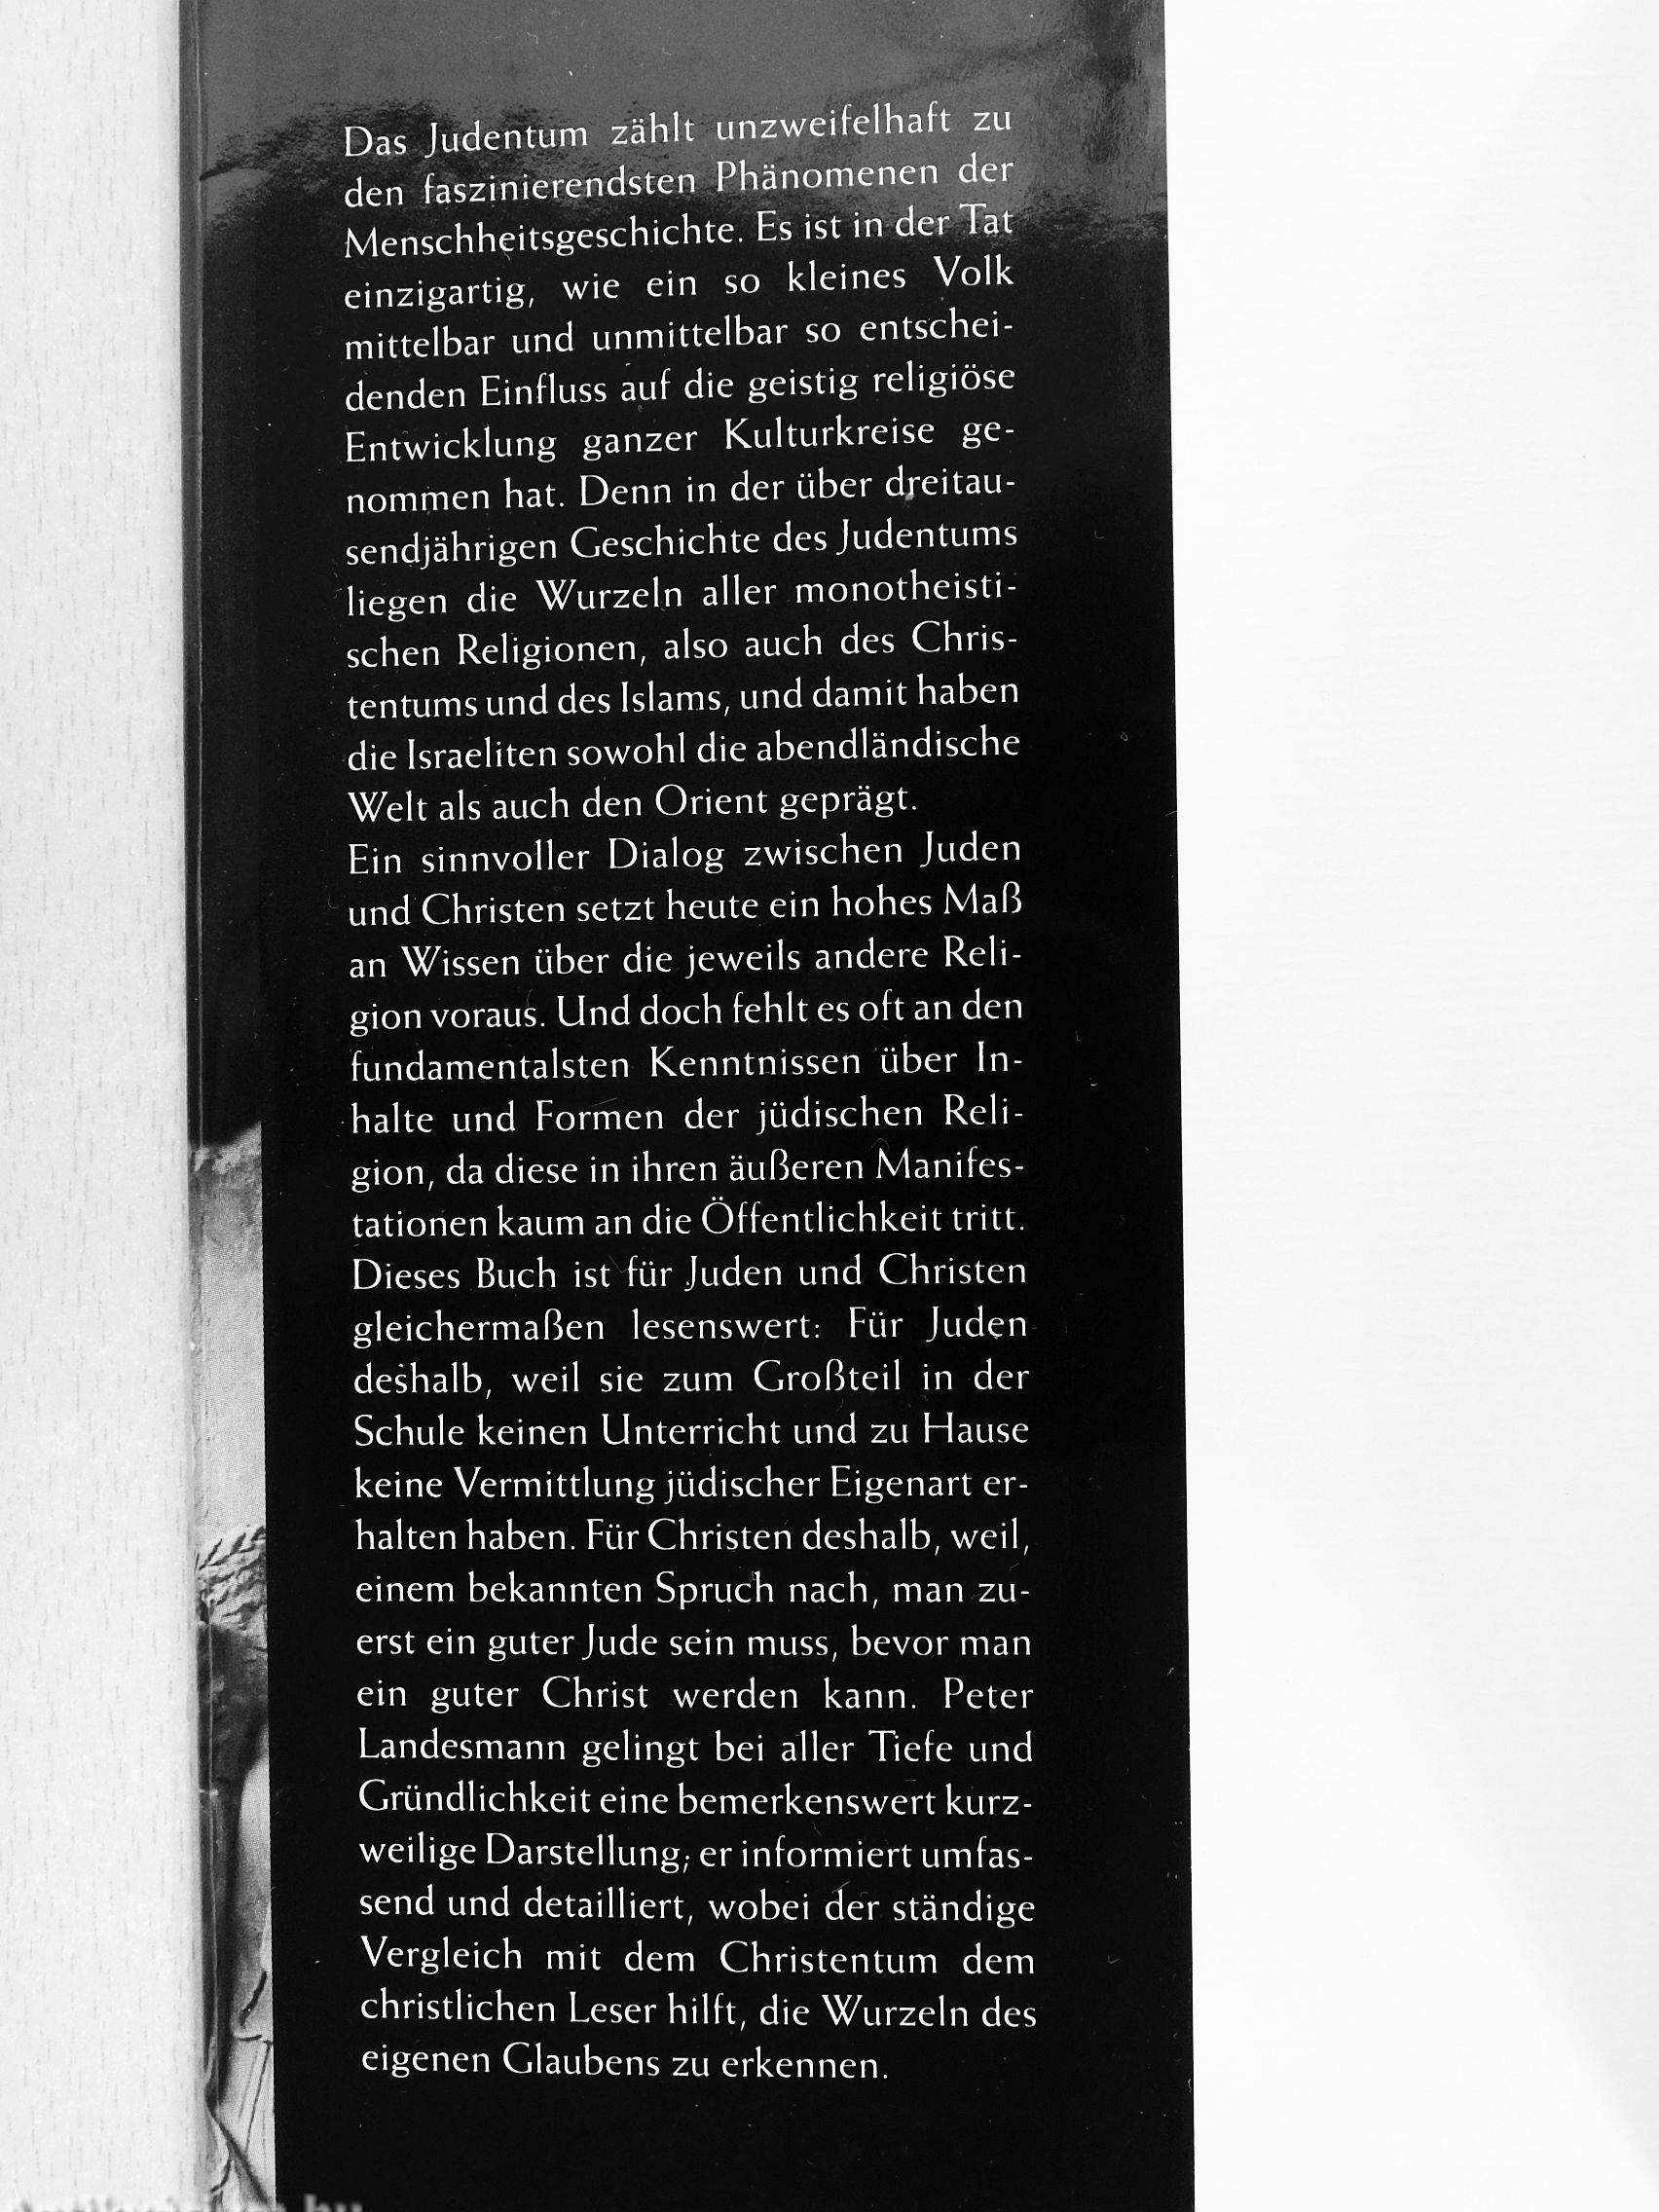 Das Judentum zählt unzweifelhaft zu
den faszinierendsten Phänomenen der
Menschheitsgeschichte. Es ist in der Tat
einzigartig, wie ein so kleines Volk
mittelbar und unmittelbar so entschei-
denden Einfluss auf die geistig religiöse
Entwicklung ganzer Kulturkreise ge-
nommen hat. Denn in der über dreitau-
sendjährigen Geschichte des Judentums
liegen die Wurzeln aller monotheisti-
schen Religionen, also auch des Chris-
tentums und des Islams, und damit haben
die Israeliten sowohl die abendländische
Welt als auch den Orient geprägt.
Ein sinnvoller Dialog zwischen Juden
und Christen setzt heute ein hohes Maß
an Wissen über die jeweils andere Reli-
gion voraus. Und doch fehlt es oft an den
fundamentalsten Kenntnissen über In-
halte und Formen der jüdischen Reli-
gion, da diese in ihren äußeren Manifes-
tationen kaum an die Öffentlichkeit tritt.
Dieses Buch ist für Juden und Christen
gleichermaßen lesenswert: Für Juden
deshalb, weil sie zum Großteil in der
Schule keinen Unterricht und zu Hause
keine Vermittlung jüdischer Eigenart er-
halten haben. Für Christen deshalb, weil,
einem bekannten Spruch nach, man zu-
erst ein guter Jude sein muss, bevor man
ein guter Christ werden kann. Peter
Landesmann gelingt bei aller Tiefe und
Gründlichkeit eine bemerkenswert kurz-
weilige Darstellung; er informiert umfas-
send und detailliert, wobei der ständige
Vergleich mit dem Christentum dem
christlichen Leser hilft, die Wurzeln des
eigenen Glaubens zu erkennen.